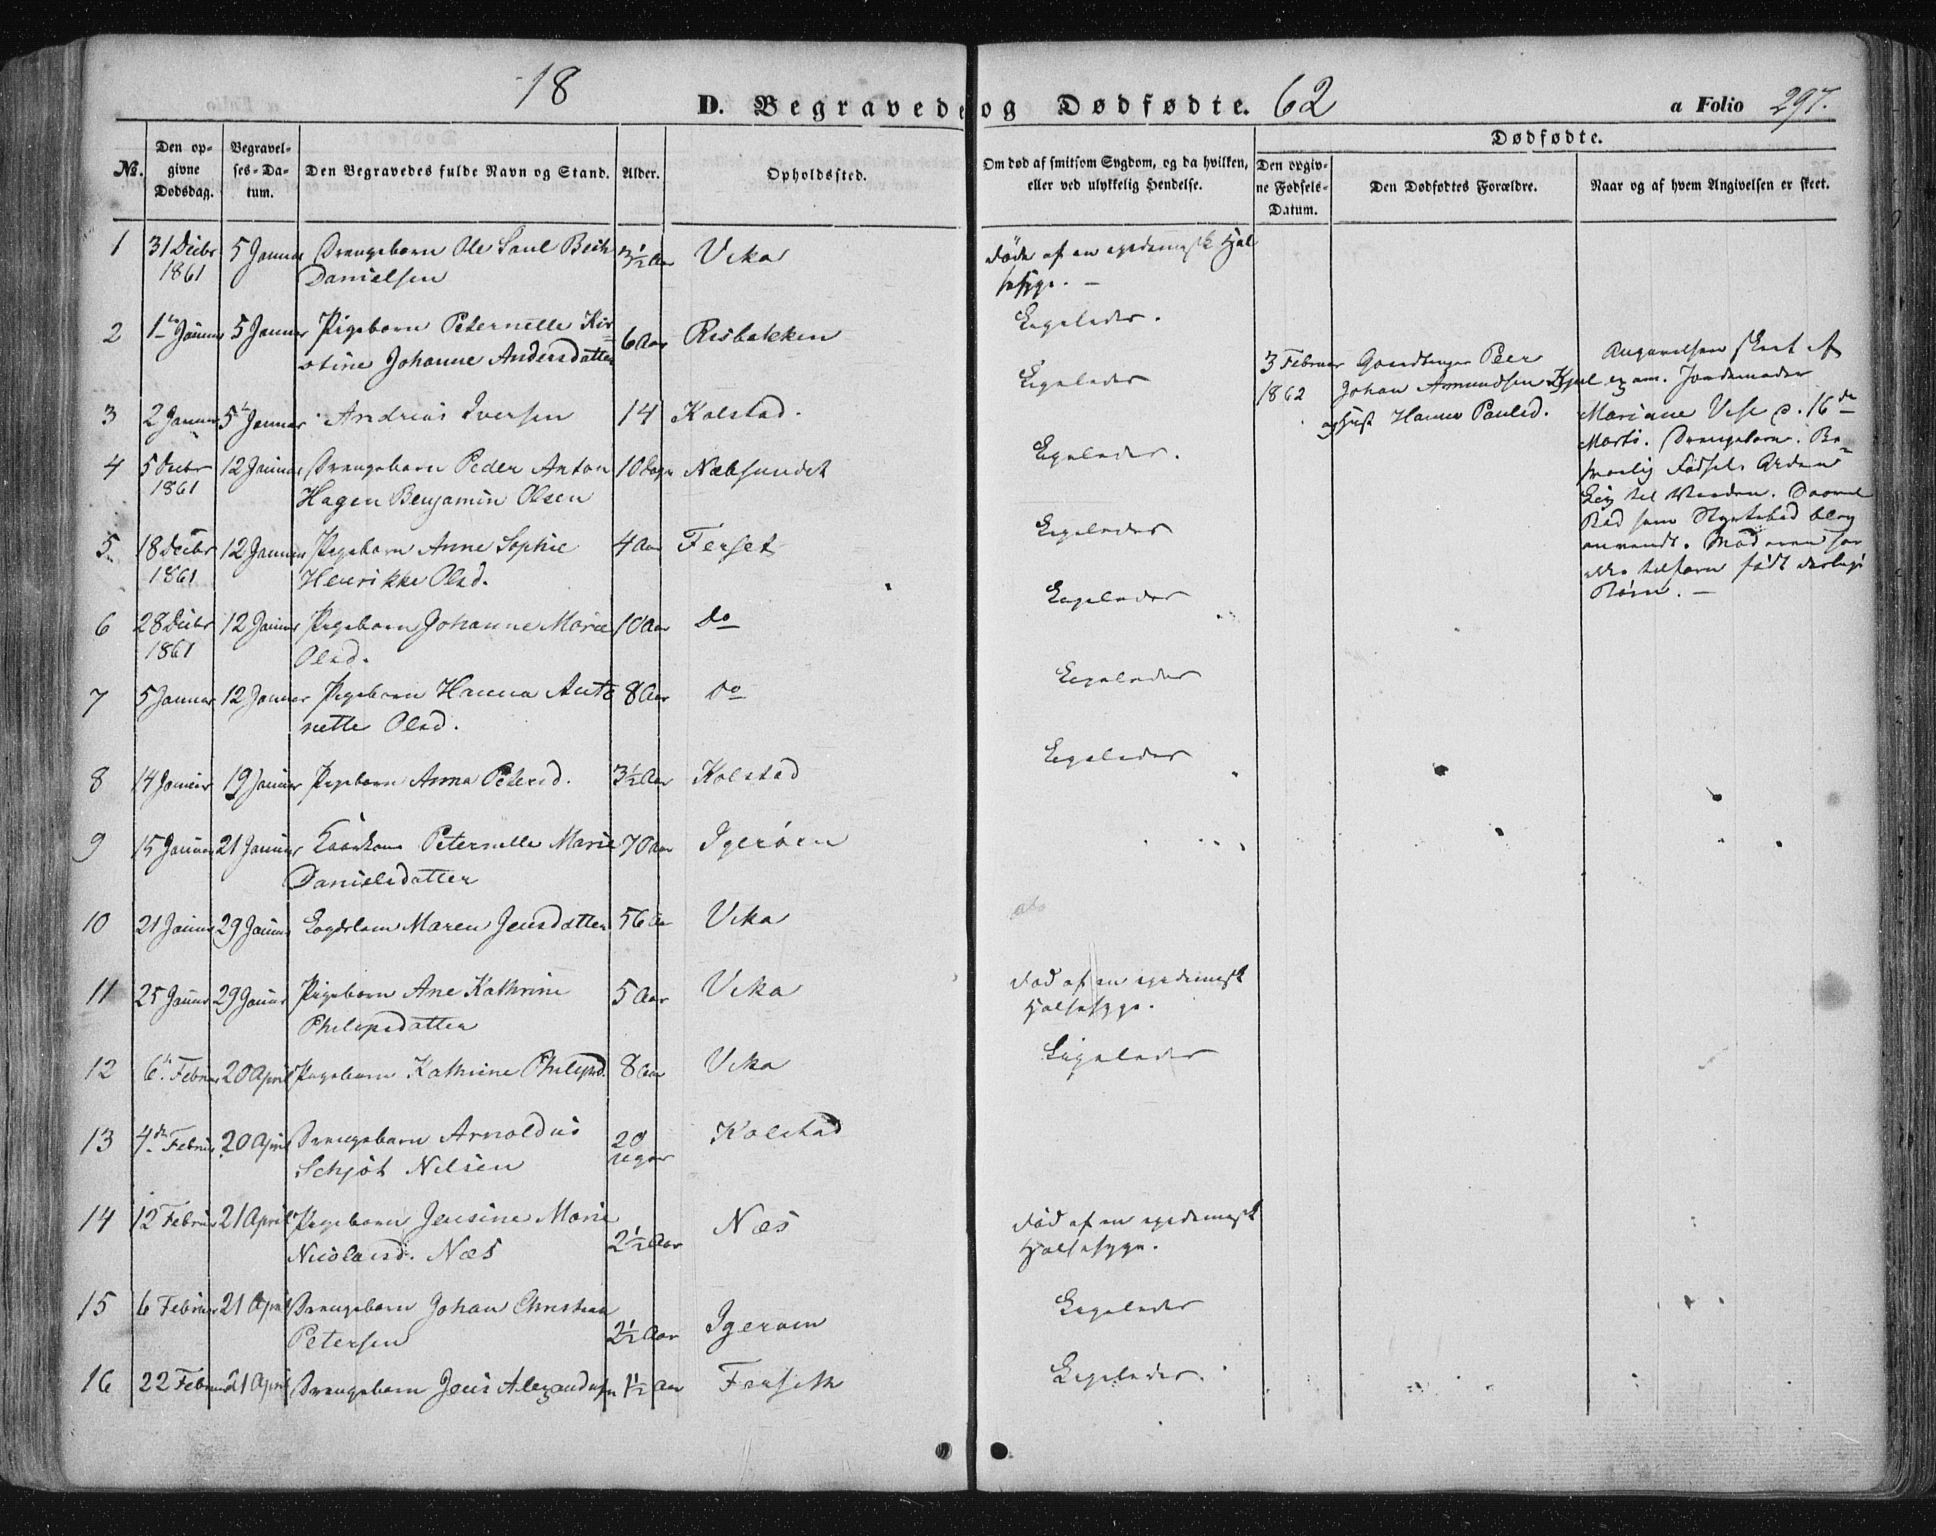 18 D. Begravede og Dødfødte. 62 a Folio 297.
No. Den opgivne Dødsdag. Begravelses-Datum. Den Begravedes fulde Navn og Stand. Alder. Opholdssted. Om død af smitsom Sygdom, og da hvilken, eller ved ulykkelig Hendelse.
Dødfødte.
Den opgivne Fødsels-Datum. Den Dødfødtes Forældre. Naar og af hvem Angivelsen er skeet.
1 31 Decbr 5 Januar Drengebarn Ole Paul 3½ Aar Vika Død af en epedemisk Hal
1861 Danielsen sesyge. —
2 1te Januar 5 Januar Pigebarn Peternelle Kir 6 Aar Risbakken Ligeledes.
stine Johanne Andersdatter
3 2 Januar 5te Januar Andreas Iversen 14 Kolstad. Ligeledes
4 5 Decbr 12 Januar Drengebarn Peder Anton 10 Dage Næbsundet Ligeledes.
1861 Hagen Benjamin Olsen
5 18 Decbr 12 Januar Pigebarn Anne Sophie 4 Aar Ferset Ligeledes
1861 Henrikke Olsd.
6 28 Decbr 12 Januar Pigebarn Johanne Marie 10 Aar Do Ligeledes
1861 Olsd.
7 5 Januar 12 Januar Pigebarn Hanna Anto 8 Aar Do Ligeledes
nette Olsd.
8 14 Januar 19 Januar Pigebarn Anna Petersd. 3½ Aar Kolstad Ligeledes
9 15 Januar 21 Januar Peternelle Marie 70 Aar Igerøen
Danielsdatter
10 21 Januar 29 Januar Maren Jensdatter 56 Aar Vika
11 25 Januar 29 Januar Pigebarn Ane Kathrine 5 Aar Vika Død af en epedemisk
Philipsdatter Halsesyge.
12 6te Februar 20 April Pigebarn Kathrine Philipsd. 8 Aar Vika Ligeledes
13 4de Februar 20 April Drengebarn Arnoldus 20 Kolstad
Schjøt Nilsen Uger
14 12 Februar 21 April Pigebarn Jensine Marie 2½ Aar Næs Død af en epedemisk
Nicolaisd. Næs Halsesyge.
15 6 Februar 21 April Drengebarn Johan Christian 2½ Aar Igerøen Ligeledes
Petersen
16 22 Februar 21 April Drengebarn Jens Alexandersen 1½ Aar Ferseth Ligeledes.
3 Februar Gaardbruger Peer
1862 Johan Amundsen
og Hust Hanna Paulsd.
Angivelsen skeet af
exam. Jordemoder
Mariane d. 16de
Marts. Drengebarn. Be-
sværlig Fødsel.
til Verden.
Bad som Styrtebad blev
anvendt. Moderen har
ikke tilforn født
Børn. —